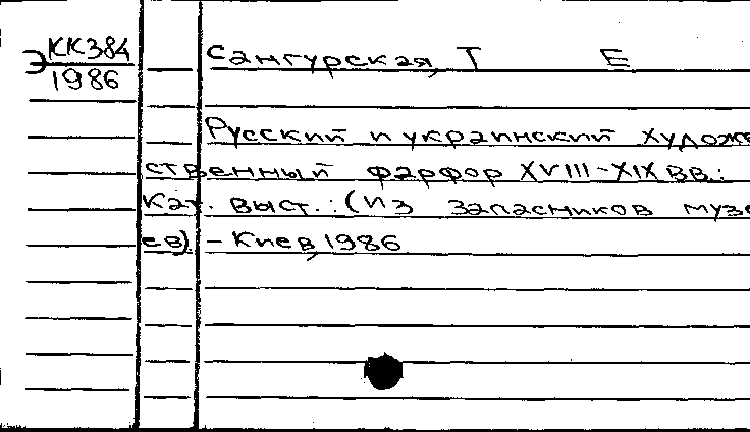 Э КК384
1986
Сангурская, Т Е
Русский и украинский художе
ственный фарфор XVIII-XIX вв.:
Кат. выст.: (из запасников музе
ев). - Киев, 1986